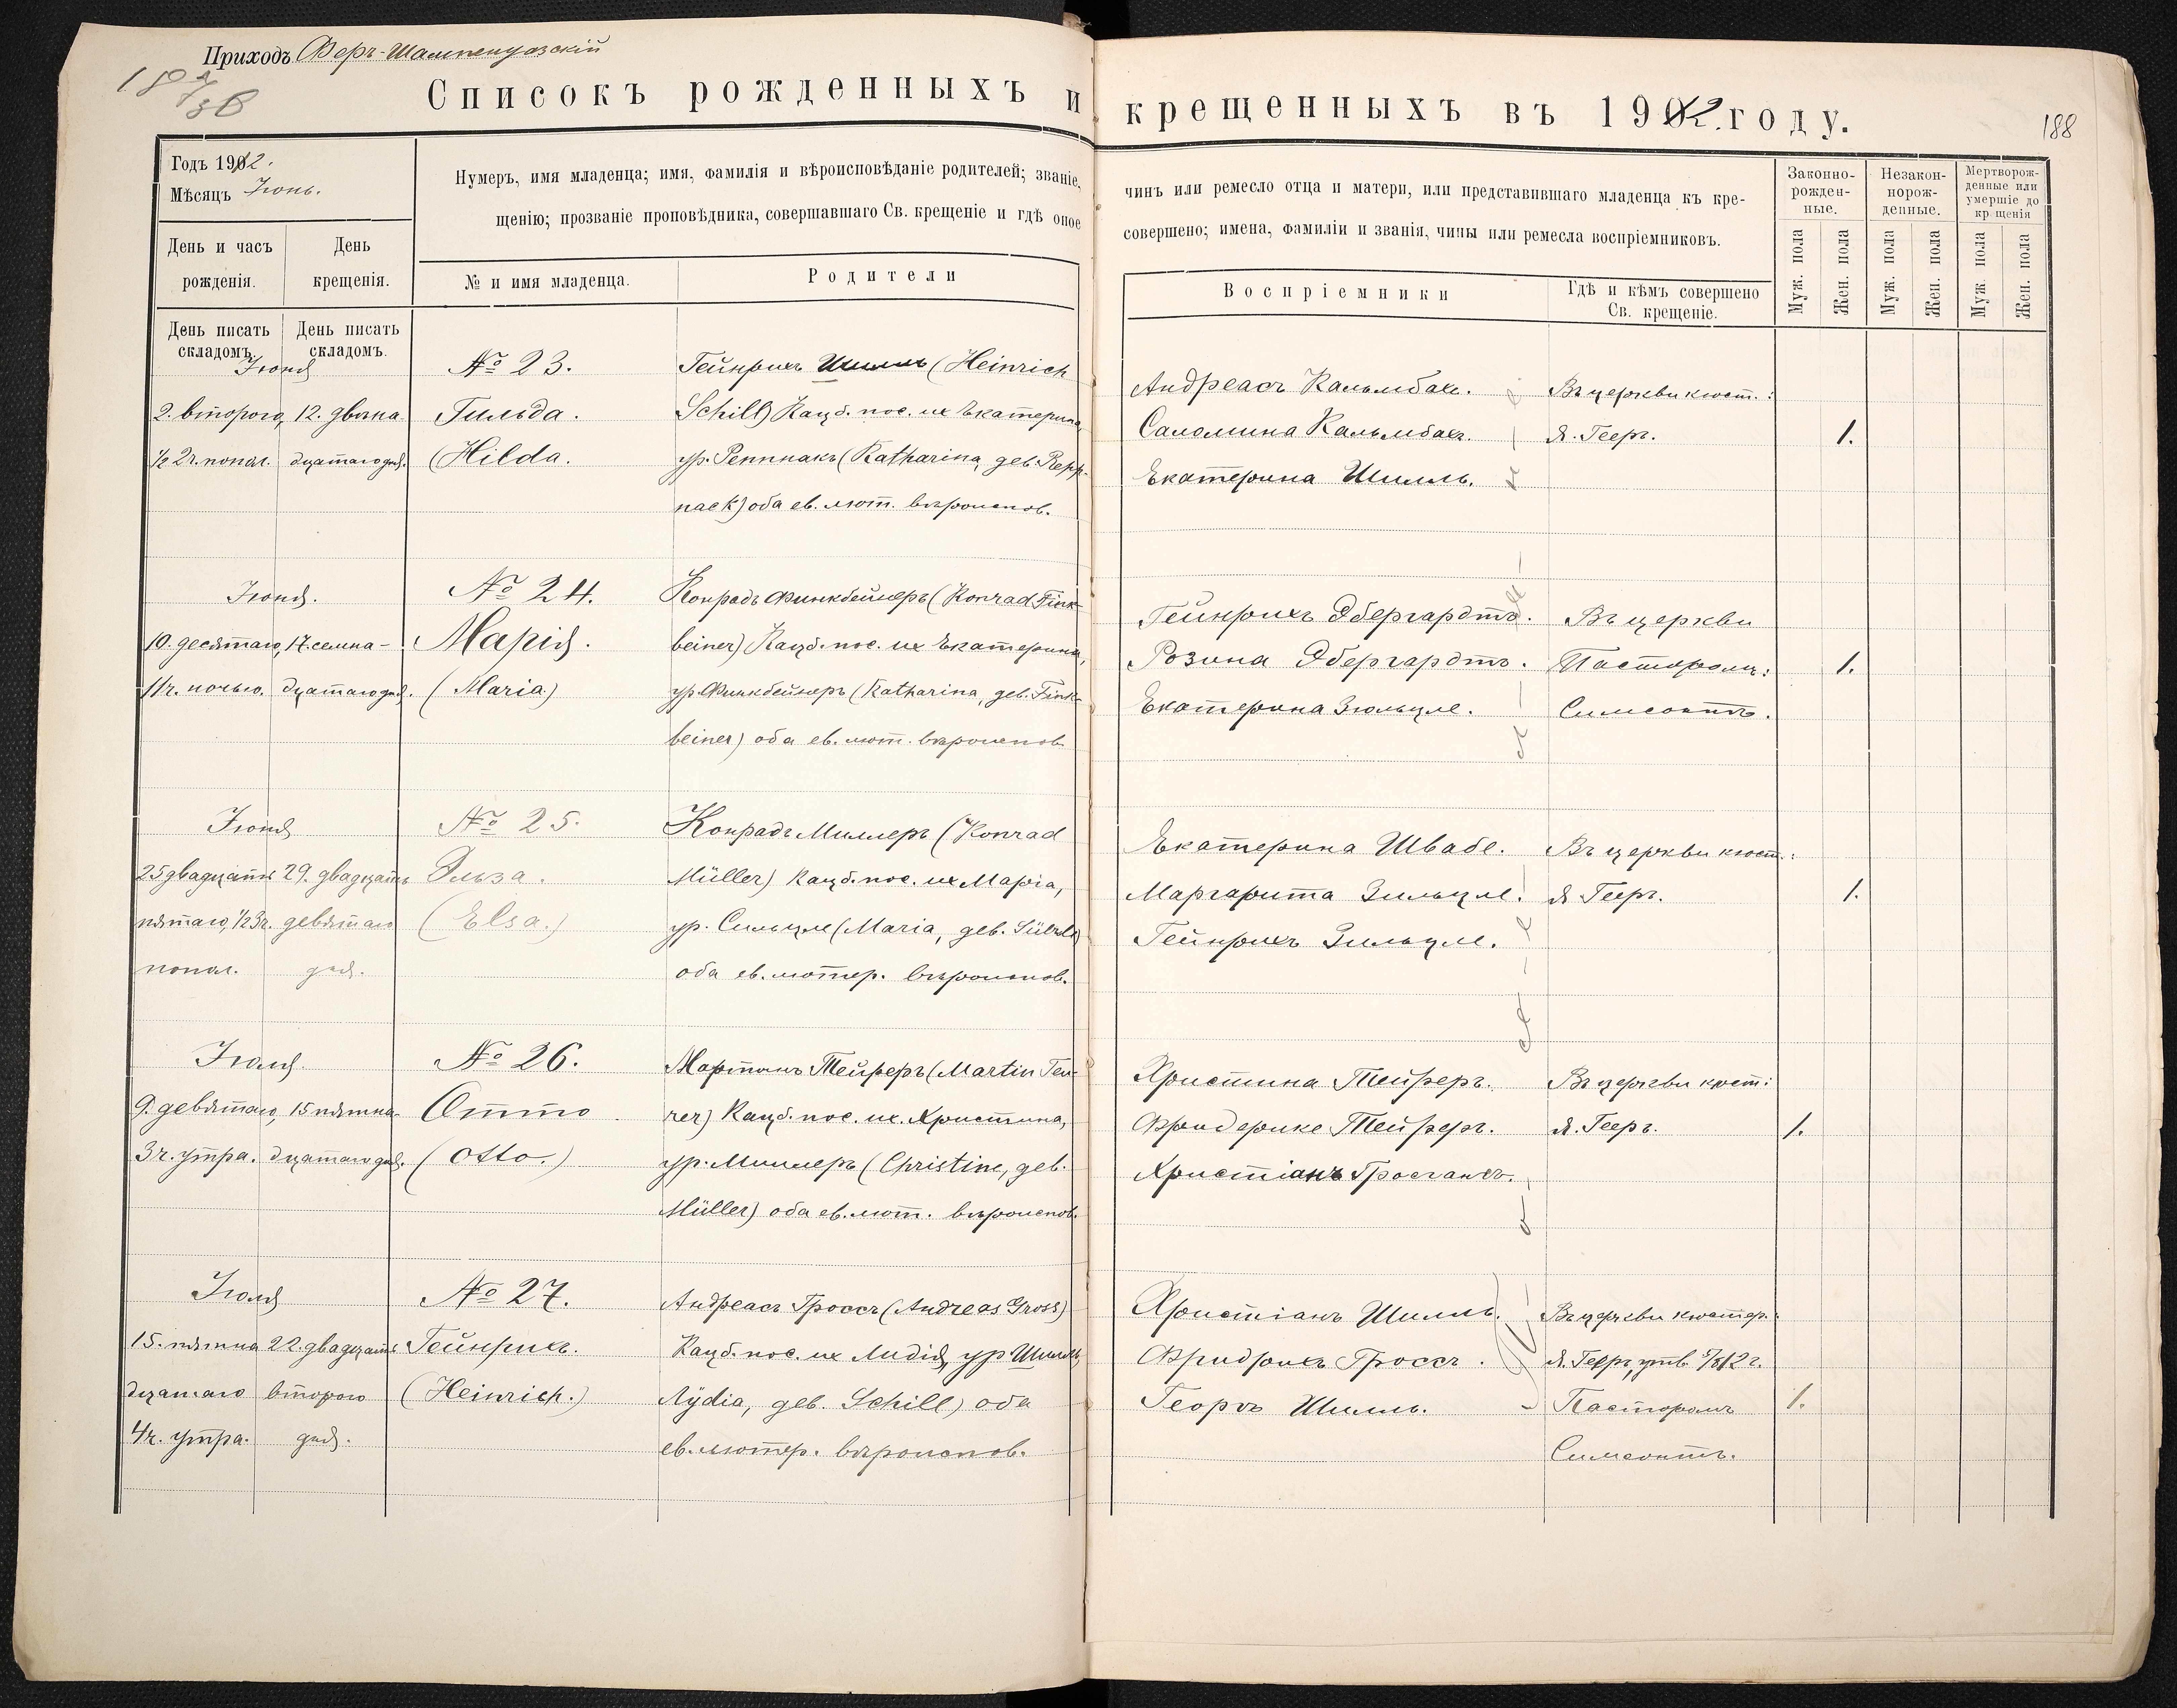 Приходъ Феръ-Шампенуазскій
Списокъ рожденныхъ и крещенныхъ въ 1912. году.
188
Годъ 1912.
Мѣсяцъ Іюнь.
Нумеръ, имя младенца; имя, фамилія и вѣроисповѣданіе родителей; званіе, чинъ или ремесло отца и матери, или представившаго младенца къ кре-
щенію; прозваніе проповѣдника, совершавшаго Св. крещеніе и гдѣ оное совершено; имена, фамиліи и званія, чины или ремесла воспріемниковъ.
Законно-
рожден-
ные.
Незакон-
норож-
денные.
Мертворож-
денные или
умершіе до
кр щенія
День и часъ
рожденія.
День
крещенія.
№ и имя младенца.
Родители
Воспріемники
Гдѣ и кѣмъ совершено
Св. крещеніе.
Муж. пола
Жен. пола
Муж. пола
Жен. пола
Муж. пола
Жен. пола
День писать
складомъ.
День писать
складомъ.
Іюня
2. второго,
½ 2ч. попол.
12. двѣна-
дцатаго дня.
№ 23.
Гильда.
(Hilda.
Гейнрихъ Шилль (Heinrich
Schill) Кацб. пос. их Екатерина
ур. Реппнакъ (Katharina, geb. Repp-
nack) оба ев. лют. вѣроиспов.
Андреасъ Кальмбахъ.
Саломина Кальмбахъ.
Екатерина Шилль.
Въ церкви кюст.:
Я. Гееръ.
1.
Іюня.
10. десятаго,
11ч. ночью.
17. семна-
дцатаго дня.
№ 24.
Марія.
(Maria.)
Конрадъ Финкбейнеръ (Konrad Fink-
beiner) Кацб. пос. их Екатерина,
ур. Финкбейнеръ (Katharina, geb. Fink-
beiner) оба ев. лют. вѣроиспов.
Гейнрихъ Эбергардтъ.
Розина Эбергардтъ.
Екатерина Зюльцле.
Въ церкви
Пасторомъ:
1.
Іюня
25 двадцать
пятаго, ½3ч.
попол.
29. двадцать
девятаго
дня.
№ 25.
Эльза.
(Elsa.)
Конрадъ Миллеръ (Konrad
Müller) Кацб. пос. их Марія,
ур. Сильцле (Maria, geb. Sülzle)
оба ев. лютер. вѣроиспов.
Екатерина Швабе.
Маргарита Зильцле.
Гейнрихъ Зильцле.
Въ церкви кюст.:
Я Гееръ.
1.
Іюля.
9. девятаго,
3ч. утра.
15 пятна-
дцатаго дня.
№ 26.
Отто
(Otto.)
Мартинъ Тейреръ (Martin Teu-
rer) Кацб. пос. их. Христина,
ур. Миллеръ (Christine, geb.
Müller) оба ев. лют. вѣроиспов.
Христина Тейреръ.
Фридерике Тейреръ.
Христіанъ
Въ церкви кюст:
Я. Гееръ.
1.
Іюля
15. пятна
дцатаго
4ч. утра.
22. двадцать
второго
дня.
№ 27.
Гейнрихъ.
(Heinrich.)
Андреасъ Гроссъ (Andreas Gross)
Кацб. пос. их Лидія, ур Шилль,
Lydia, geb. Schill) оба
ев. лютер. вѣроиспов.
Христіанъ Шилль.
Фридрихъ Гроссъ.
Георгъ Шилль.
Въ церкви кюстер.:
Я. Гееръ, утв. 5/8 12 г.
Пасторомъ
1.